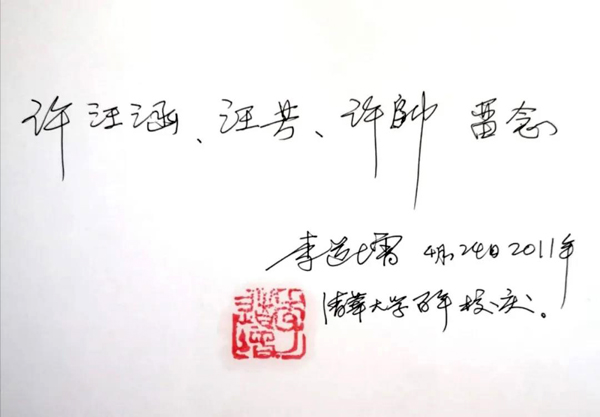 许汪涵、汪芳、许帥 留念
李道增 4月24日2011年
清華大学百年校庆。